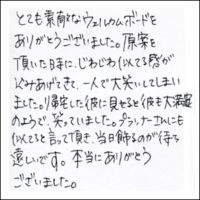 とても素敵なウェルカムボードを
ありがとうございました。原案を
頂いた日まに、じわじわ似てる感が
込みあげてきて、一人で大笑いしてしまい
ました。帰宅した彼に見せると彼も大満足
のようで、笑っていました。プランナーさんにも
似てると言って頂き、当日飾るのが待ち
遠しいです。本当にありがとう
ございました。